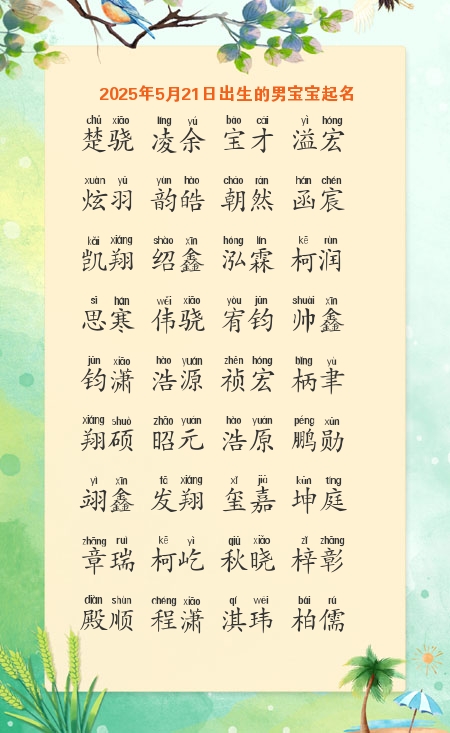 2025年5月21日出生的男宝宝起名
chǔ xiāo líng yú bǎo cái yì hóng
楚骁 凌余 宝才 溢宏
xuàn yǔ yùn hào cháo rán hán chén
炫羽 韵皓 朝然 函宸
kǎi xiáng shào xīn hóng lín kē rùn
凯翔 绍鑫 泓霖 柯润
sī hán wěi xiāo yòu jūn shuài xīn
思寒 伟骁 宥钧 帅鑫
jūn xiāo hào yuán zhēn hóng bǐng yù
钧潇 浩源 祯宏 柄聿
xiáng shuò zhāo yuán hào yuán péng xūn
翔硕 昭元 浩原 鹏勋
yì xīn fā xiáng xǐ jiā kūn tíng
翊鑫 发翔 玺嘉 坤庭
zhāng ruì kē yì qiū xiǎo zǐ zhāng
章瑞 柯屹 秋晓 梓彰
diàn shùn chéng xiāo qí wěi bǎi rú
殿顺 程潇 淇玮 柏儒